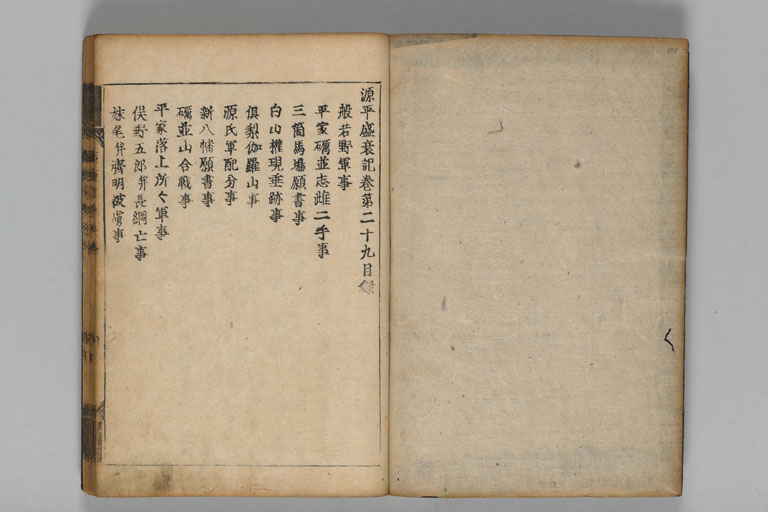 源平盛衰記巻第二十九目録
般若野軍事
平家礪並志雌二手事
三箇馬場願書事
白山權現垂跡事
倶梨伽羅山事
源氏軍配分事
新八幡願書事
礪並山合戰事
平家落上所々軍事
俣野五郎并長綱亡事
妹尾并齊明被虜事